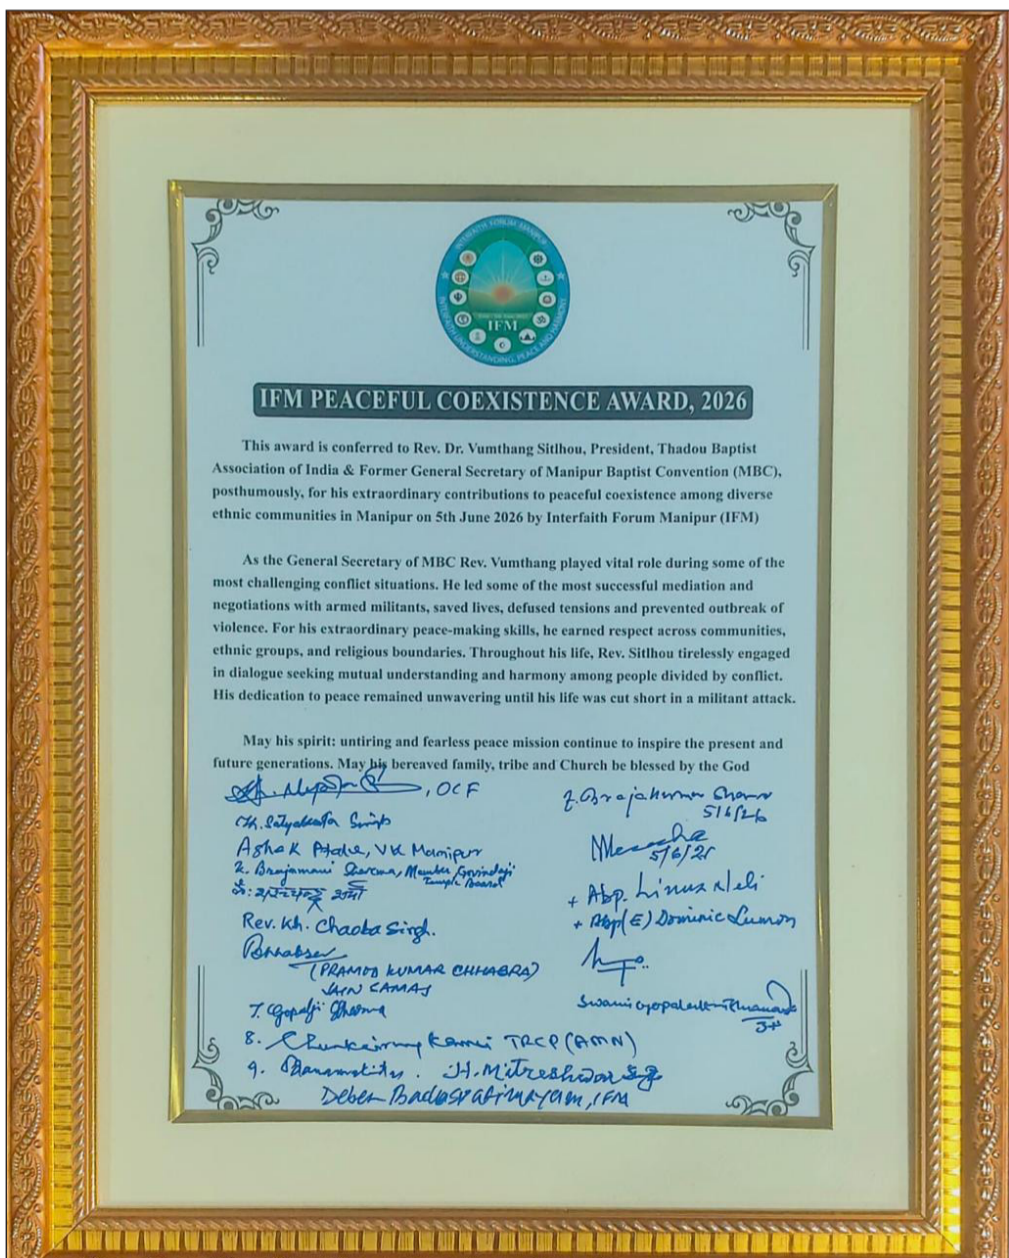 INTERFAITH FORUM MANIPUR
IFM
INTERFAITH UNDERSTANDING, PEACE AND HARMONY
IFM PEACEFUL COEXISTENCE AWARD, 2026
This award is conferred to Rev. Dr. Vumthang Sitlhou, President, Thadou Baptist
Association of India & Former General Secretary of Manipur Baptist Convention (MBC),
posthumously, for his extraordinary contributions to peaceful coexistence among diverse
ethnic communities in Manipur on 5th June 2026 by Interfaith Forum Manipur (IFM)
As the General Secretary of MBC Rev. Vumthang played vital role during some of the
most challenging conflict situations. He led some of the most successful mediation and
negotiations with armed militants, saved lives, defused tensions and prevented outbreak of
violence. For his extraordinary peace-making skills, he earned respect across communities,
ethnic groups, and religious boundaries. Throughout his life, Rev. Sitlhou tirelessly engaged
in dialogue seeking mutual understanding and harmony among people divided by conflict.
His dedication to peace remained unwavering until his life was cut short in a militant attack.
May his spirit: untiring and fearless peace mission continue to inspire the present and
future generations. May his bereaved family, tribe and Church be blessed by the God
, OCF
5/6/26
Singh
Ashok, VK Manipur
Sharma, Member Govindaji
Temple Board
+ Abp. Linus Neli
+ Abp(E) Dominic Lumon
Rev. Kh. Chaoba Singh.
(PRAMOD KUMAR CHHABRA)
JAIN SAMAJ
7. Gopalji Sharma
Swami
8. Kamei TRCP (AMN)
9.
Deben, IFM